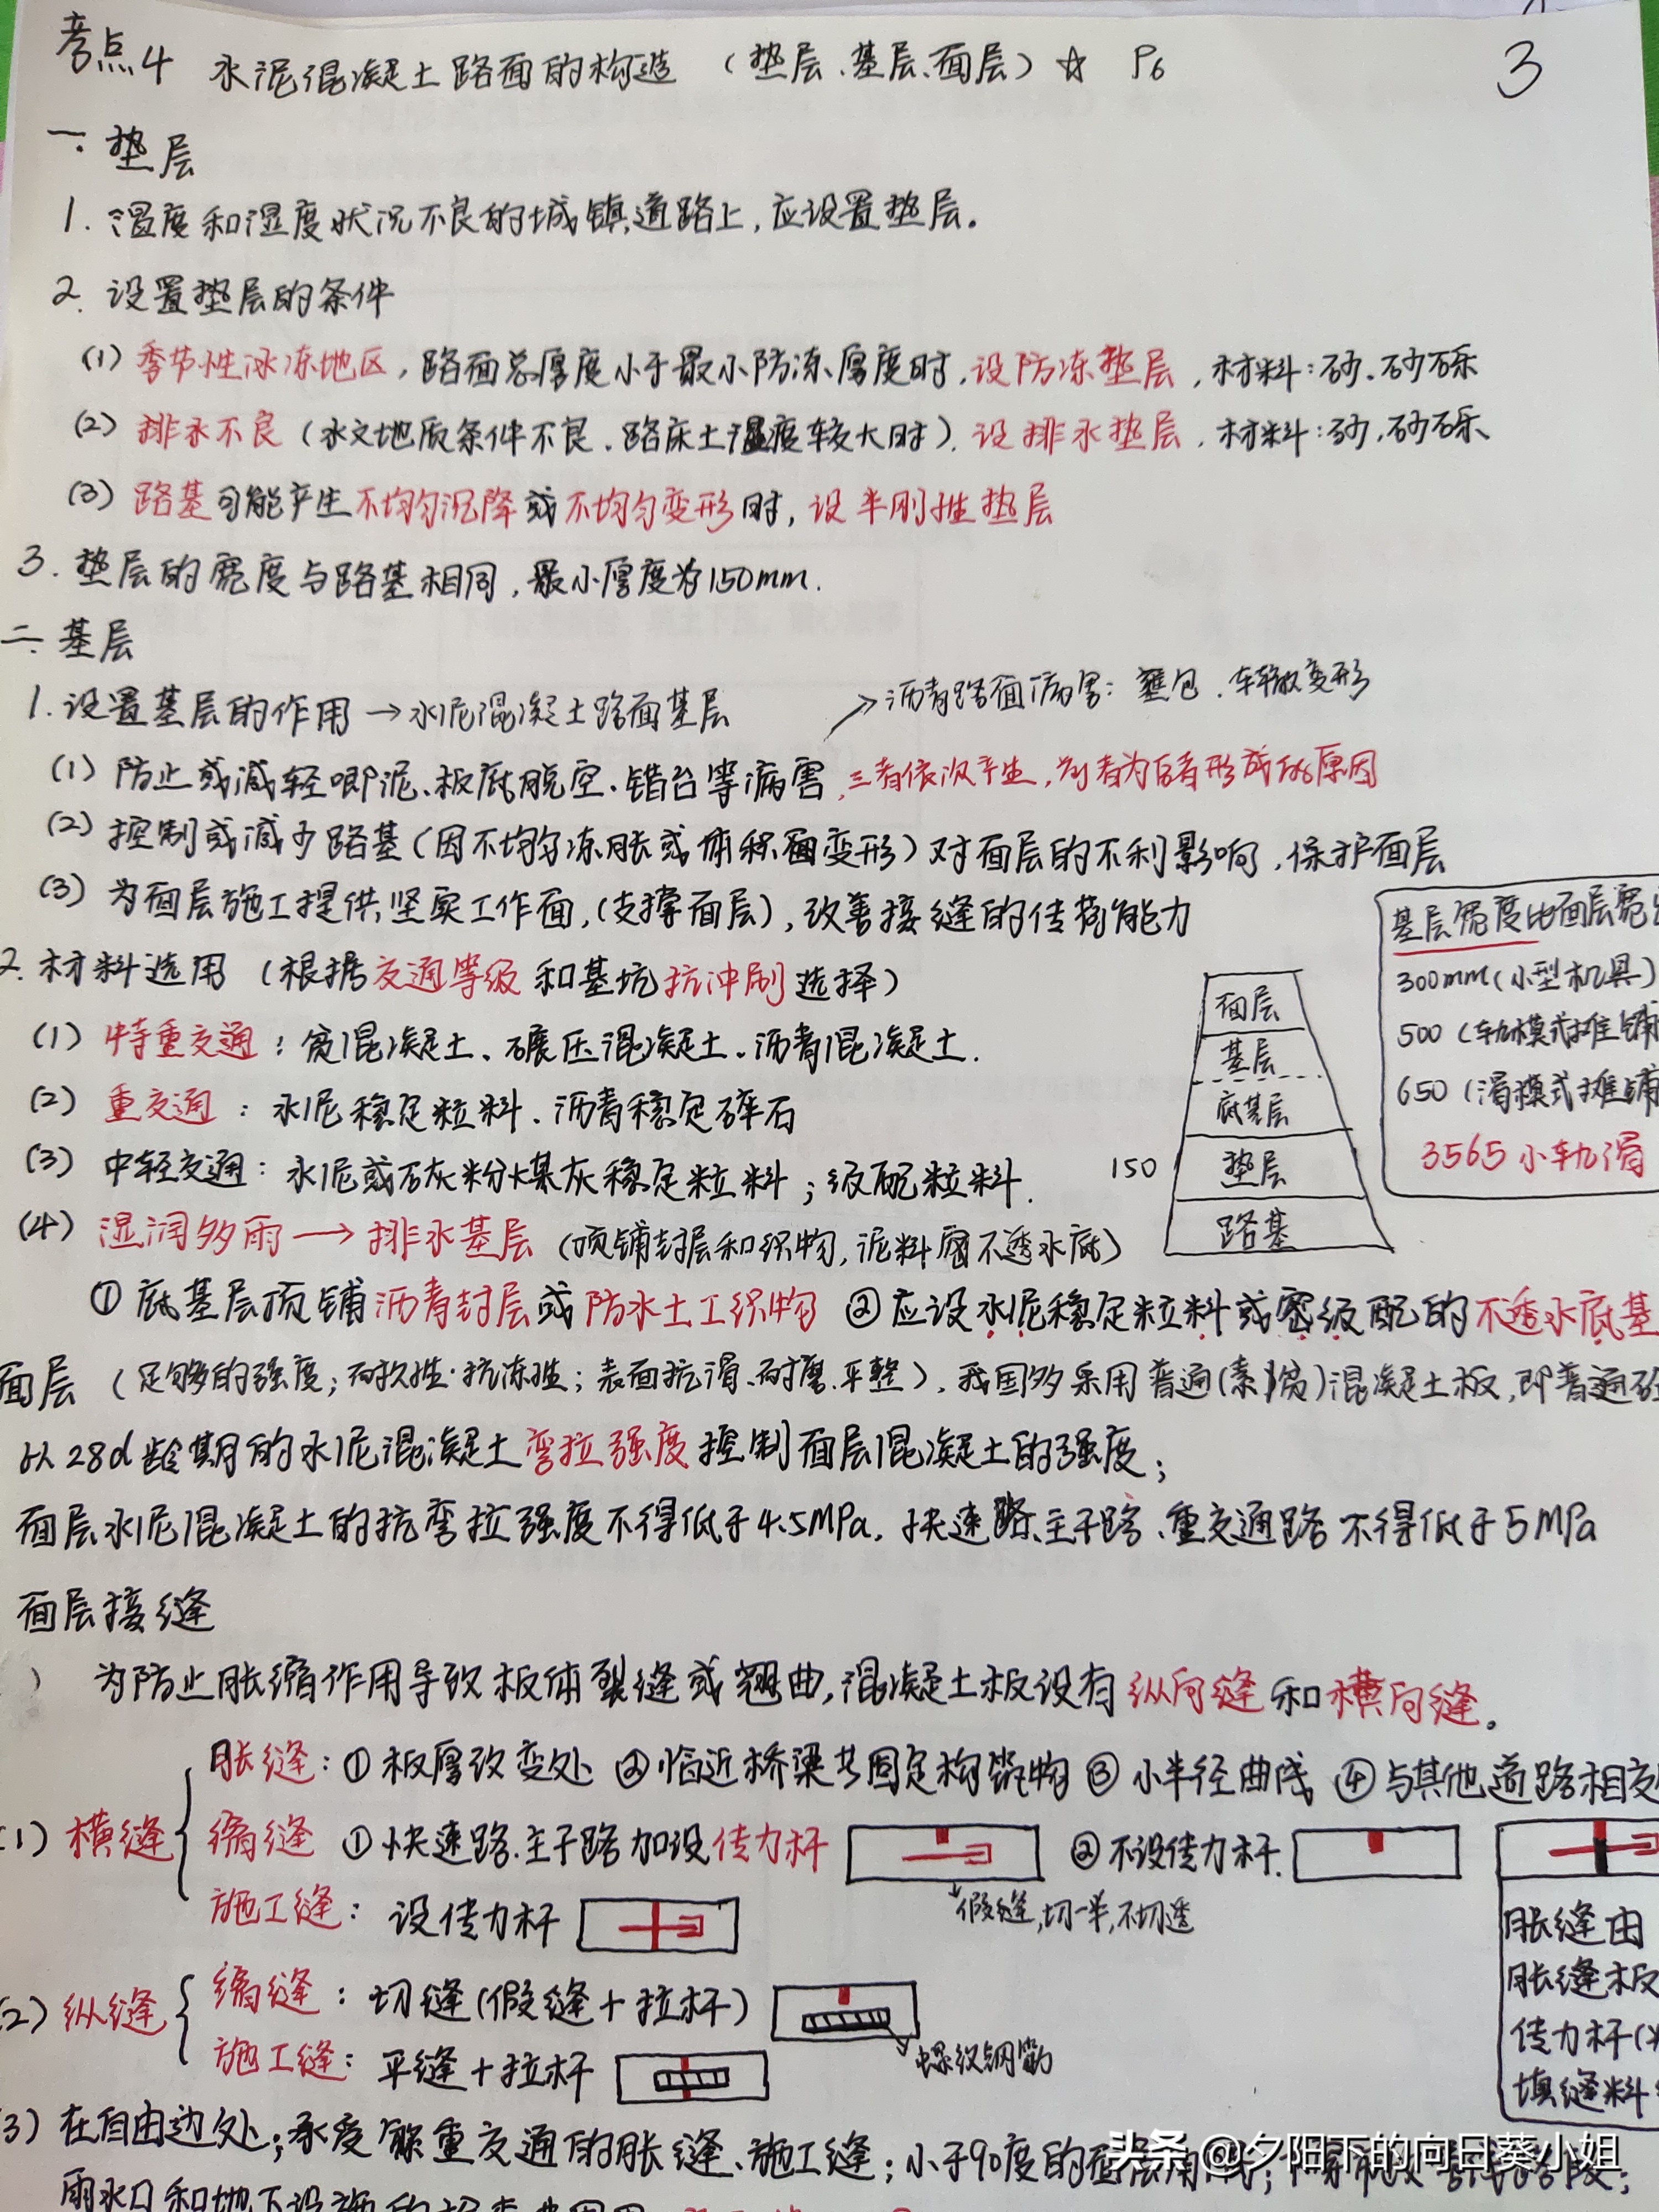 考点4 水泥混凝土路面的构造 (垫层、基层、面层) ☆ P6
3
一. 垫层
1. 温度和湿度状况不良的城镇道路上,应设置垫层。
2. 设置垫层的条件
(1) 季节性冰冻地区,路面总厚度小于最小防冻厚度时,设防冻垫层,材料:砂、砂砾
(2) 排水不良(水文地质条件不良、路床土湿度较大时).设排水垫层,材料:砂,砂砾
(3) 路基可能产生不均匀沉降或不均匀变形时,设半刚性垫层
3. 垫层的宽度与路基相同,最小厚度为150mm.
二. 基层
1. 设置基层的作用→水泥混凝土路面基层
→沥青路面病害: 壅包、车辙变形
(1) 防止或减轻唧泥、板底脱空、错台等病害,三者依次产生,前者为后者形成的原因
(2) 控制或减少路基(因不均匀冻胀或体积变形)对面层的不利影响,保护面层
(3) 为面层施工提供坚实工作面,(支撑面层),改善接缝的传荷能力
2. 材料选用 (根据交通等级和基坑抗冲刷选择)
(1) 特重交通: 贫混凝土、碾压混凝土、沥青混凝土.
(2) 重交通: 水泥稳定粒料、沥青稳定碎石
(3) 中轻交通: 水泥或石灰粉煤灰稳定粒料;级配粒料.
(4) 湿润多雨→排水基层 (顶铺封层和织物,泥料密不透水底)
① 底基层顶铺沥青封层或防水土工织物 ②应设水泥稳定粒料或密级配的不透水底基
面层
基层
底基层
150 垫层
路基
基层宽度比面层宽
300mm(小型机具)
500 (轨模式摊铺
650 (滑模式摊铺
3565 小轨滑
面层 (足够的强度;耐久性、抗冻性;表面抗滑、耐磨、平整),我国多采用普通(素)(贫)混凝土板,即普通砼
以28d龄期的水泥混凝土弯拉强度控制面层混凝土的强度;
面层水泥混凝土的抗弯拉强度不得低于4.5MPa, 快速路、主干路、重交通路不得低于5MPa
面层接缝
) 为防止胀缩作用导致板体裂缝或翘曲,混凝土板设有纵向缝和横向缝。
(1) 横缝
胀缝: ①板厚改变处 ②临近桥梁与固定构筑物 ③小半径曲线 ④与其他道路相交
缩缝 ①快速路、主干路加设传力杆 ②不设传力杆.
假缝,切一半,不切透
施工缝: 设传力杆
(2) 纵缝
缩缝: 切缝(假缝+拉杆)
螺纹钢筋
施工缝: 平缝+拉杆
胀缝由
胀缝板
传力杆(
填缝料
3) 在自由边处;承受特重交通的胀缝、施工缝;小于90度的面层角隅;
雨水口和地下设施的
头条 @夕阳下的向日葵小姐